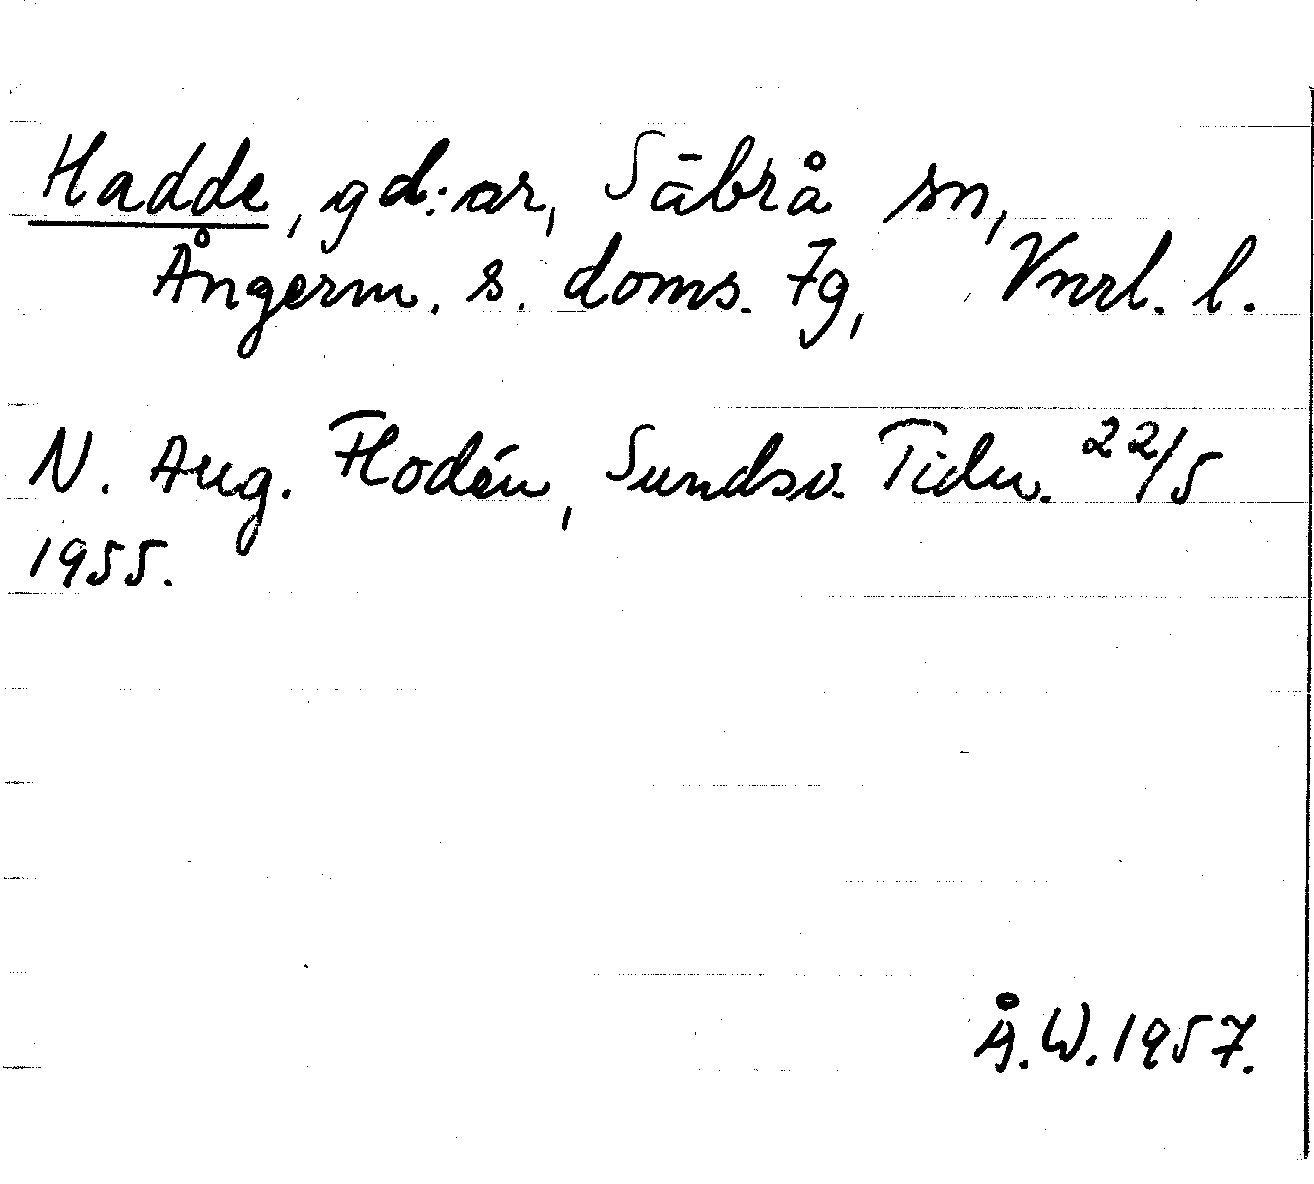 Hadde, gd:ar, Säbrå sn,
Ångerm. s. doms. 7g, Vnrl. l.
N. Aug. Flodén, Sundsv. Tidn. 22/5
1955.
Å.W. 1957.